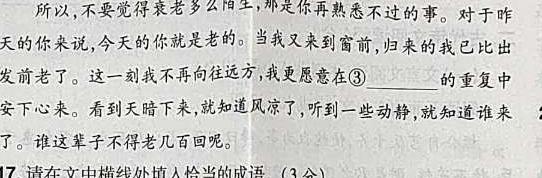 所以,不要觉得衰老多么陌生,那是你再熟悉不过的事。对于昨
天的你来说,今天的你就是老的。当我又来到窗前,归来的我已比出
发前老了。这一刻我不再向往远方,我更愿意在③______的重复中
安下心来。看到天暗下来,就知道风凉了,听到一些动静,就知道谁来
了。谁这辈子不得老几百回呢。
17.请在文中横线处填入恰当的成语。(3分)